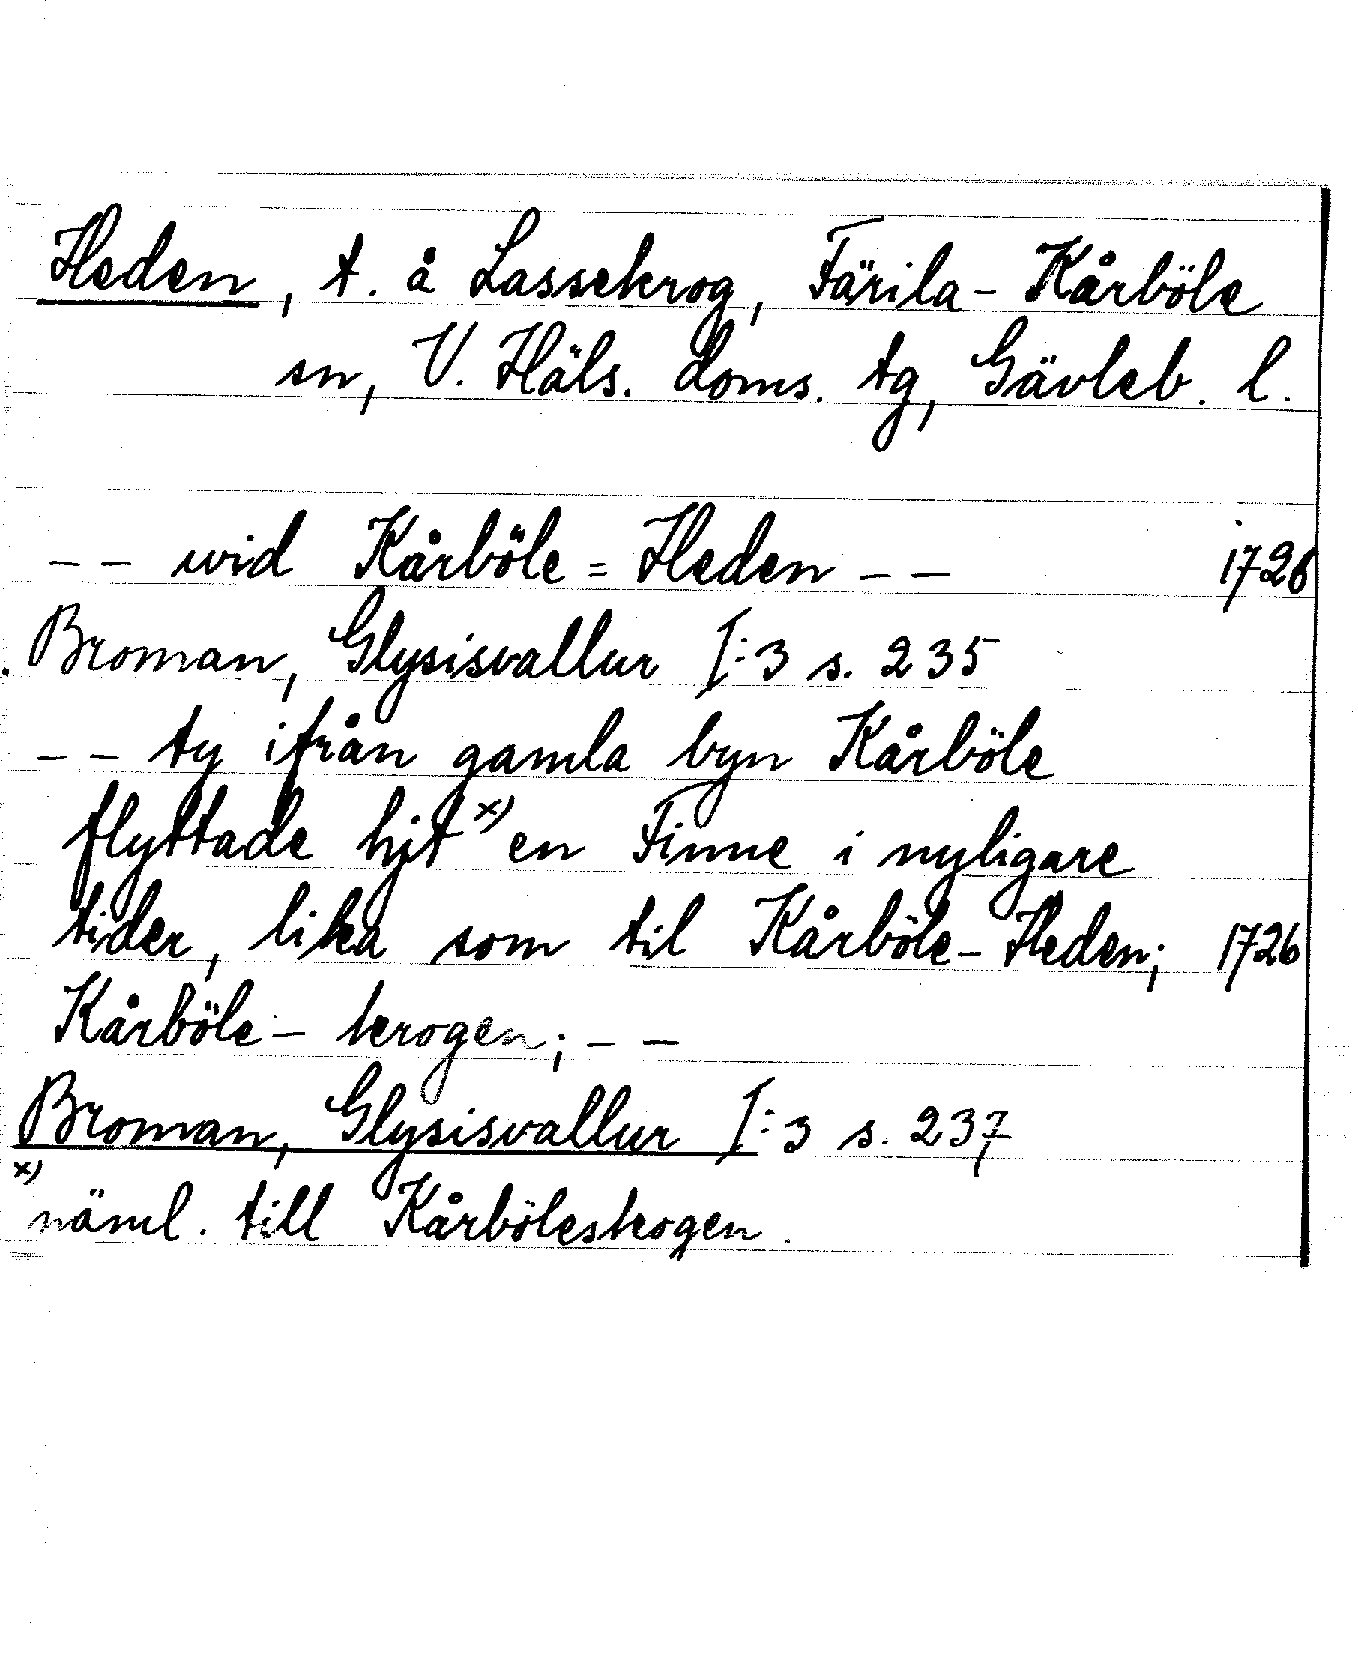 Heden, t. å Lassekrog, Färila - Kårböle
sn, V. Häls. doms. tg, Gävleb. l.
-- wid Kårböle = Heden -- 1726
Broman, Glysisvallur I:3 s. 235
-- ty ifrån gamla byn Kårböle
flyttade hjt x) en Finne i nyligare
tider, lika som til Kårböle-Heden; 1726
Kårböle - krogen; --
Broman, Glysisvallur I:3 s. 237
x)
näml. till Kårböleskogen.